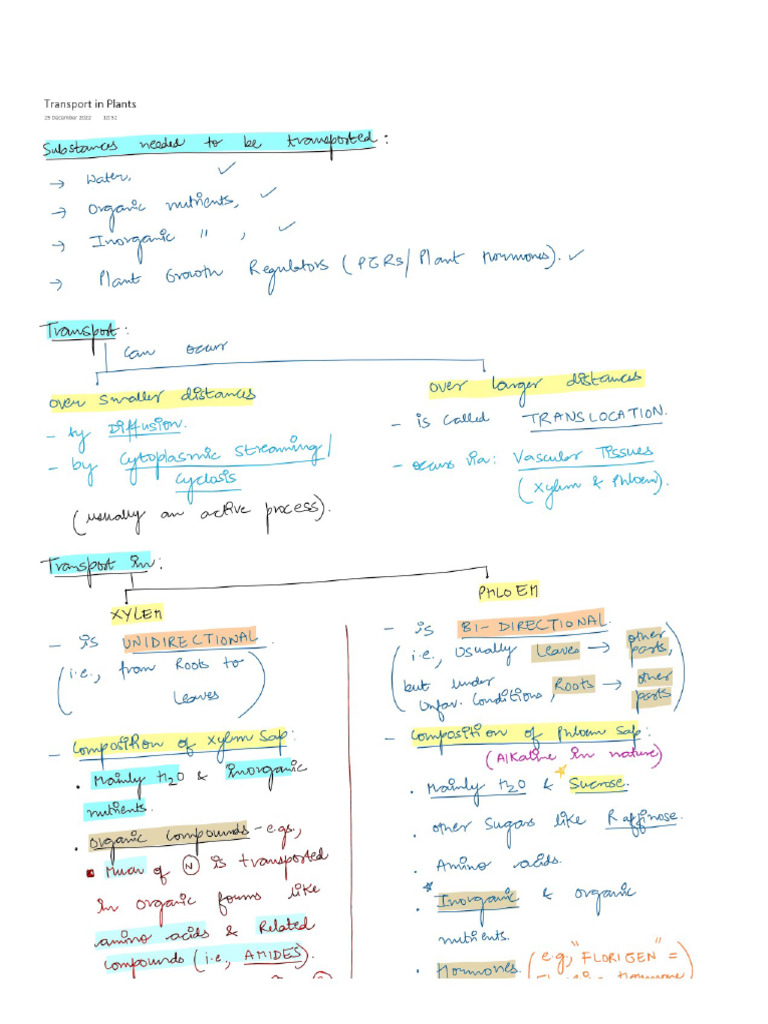 Transport in Plants
25 December 2022 10:52
Substances needed to be transported:
→ Water, ✓
→ Organic nutrients, ✓
→ Inorganic " , ✓
→ Plant Growth Regulators (PGRs/ Plant Hormones). ✓
Transport:
can occur
over smaller distances
- by Diffusion.
- by Cytoplasmic Streaming/
Cyclosis
(usually an active process).
over larger distances
- is called TRANSLOCATION.
- occurs via: Vascular Tissues
(Xylem & Phloem).
Transport in:
XYLEM
- is UNIDIRECTIONAL.
(i.e., from Roots to
Leaves)
- Composition of Xylem Sap:
. Mainly H2O & inorganic
nutrients.
. Organic Compounds - e.gs.,
Much of N is transported
in organic forms like
amino acids & Related
compounds (i.e., AMIDES).
PHLOEM
- is BI-DIRECTIONAL.
(i.e., Usually Leaves → other
parts,
but under
Unfav. Conditions, Roots → other
parts)
- Composition of Phloem Sap:
(Alkaline in nature)
. Mainly H2O & Sucrose.
. other sugars like Raffinose.
. Amino acids.
. Inorganic & organic
nutrients.
. Hormones. (e.g., "FLORIGEN" =
Hormone